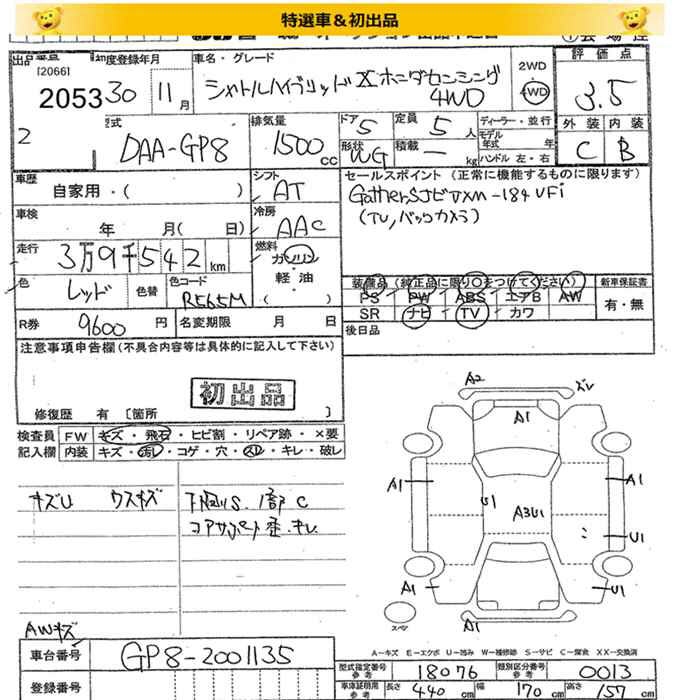 特選車＆初出品
出品番号
[20661]
20533
2
初度登録年月
30 11月
車名・グレード
シャトルハイブリッドX ホンダセンシング
4WD
2WD
4WD
評価点
3.5
型式
DAA-GP8
排気量
1500 cc
ドア 5
定員 5 人
形状 WG
積載 ー kg
ディーラー・並行
モデル年式 年式
ハンドル 左・右
外装 内装
C B
車歴
自家用・( )
シフト
AT
セールスポイント (正常に機能するものに限ります)
Gathers ナビ VXM-184VFi
(TV,バックカメラ)
車検
年 月( 日)
冷房
AAC
走行
3万9千542 km
燃料
ガソリン
軽・油
( )
色
レッド
色替
色コード
R565M
装備品 (純正品に限り○をつけてください)
新車保証書
PS PW ABS エアB AW
SR ナビ TV カワ
有・無
R券
9600 円
名変期限 月 日
後日品
注意事項申告欄(不具合内容等は具体的に記入して下さい)
初出品
修復歴 有 [箇所 ]
検査員 FW キズ・飛石・ヒビ割・リペア跡・×要
記入欄 内装 キズ・汚レ・コゲ・穴・スレ・キレ・破レ
キズU ウスキズ
下回りS. 1部C
コアサポート歪・キレ
AWキズ
A2
ズレ
A1
A1
A1
U1
A3U1
U1
A1
U1
A1
スペア
A－キズ E－エクボ U－凹み W－補修跡 S－サビ C－腐食 XX－交換済
車台番号
GP8-2001135
登録番号
型式指定番号
参考
18076
類別区分番号
参考
0013
車庫証明用
参考
長さ 440 cm
幅 170 cm
高さ 157 cm